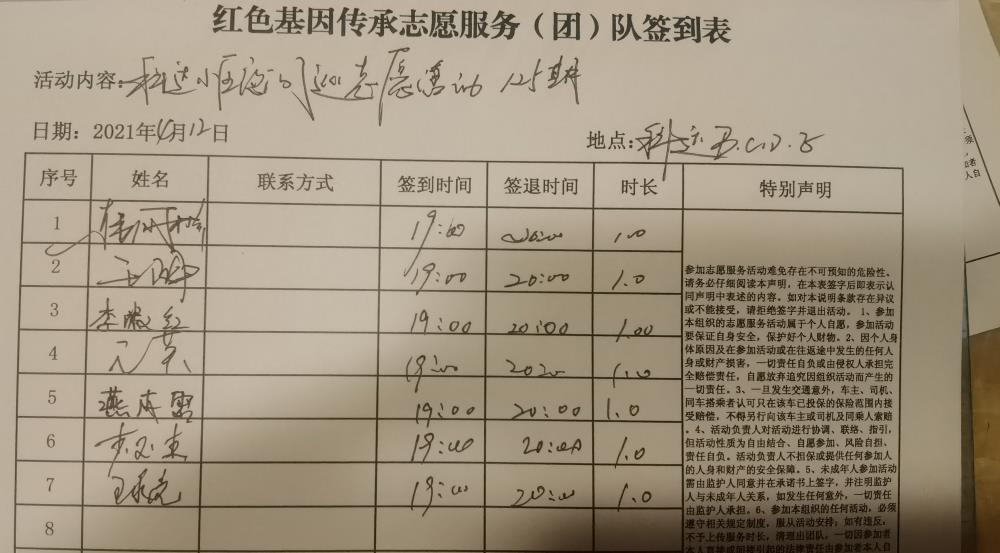 红色基因传承志愿服务（团）队签到表
活动内容：科达小区夜间巡志愿活动 125期
日期：2021年4月12日
地点：科达B.C.D.E
序号 姓名 联系方式 签到时间 签退时间 时长 特别声明
1 19:00 20:00 1.0
2 19:00 20:00 1.0
3 李淑红 19:00 20:00 1.00
4 19:00 2020 1.0
5 燕 19:00 20:00 1.0
6 19:00 20:00 1.0
7 王 19:00 20:00 1.0
8
参加志愿服务活动难免存在不可预知的危险性。
请务必仔细阅读本声明，在本表签字后即表示认
同声明中表述的内容。如对本说明条款存在异议
或不能接受，请拒绝签字并退出活动。 1、参加
本组织的志愿服务活动属于个人自愿，参加活动
要保证自身安全，保护好个人财物。2、因个人身
体原因及在参加活动或在往返途中发生的任何人
身或财产损害，一切责任自负或由侵权人承担完
全赔偿责任，自愿放弃追究因组织活动而产生的
一切责任。3、一旦发生交通意外，车主、司机、
同车搭乘者认可只在该车已投保的保险范围内接
受赔偿，不得另行向该车主或司机及同乘人索赔
。4、活动负责人对活动进行协调、联络、指引，
但活动性质为自由结合、自愿参加、风险自担、
责任自负。活动负责人不担保或提供任何参加人
的人身和财产的安全保障。5、未成年人参加活动
需由监护人同意并在承诺书上签字，并注明监护
人与未成年人关系，如发生任何意外，一切责任
由监护人承担。6、参加本组织的任何活动，必须
遵守相关规定制度，服从活动安排；如有违反，
不予上传服务时长，清理出团队，一切因参加者